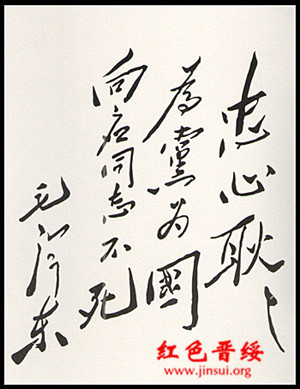 忠心耿〻
為黨為國
向应同志不死
毛泽东
红色晋绥
www.jinsui.org